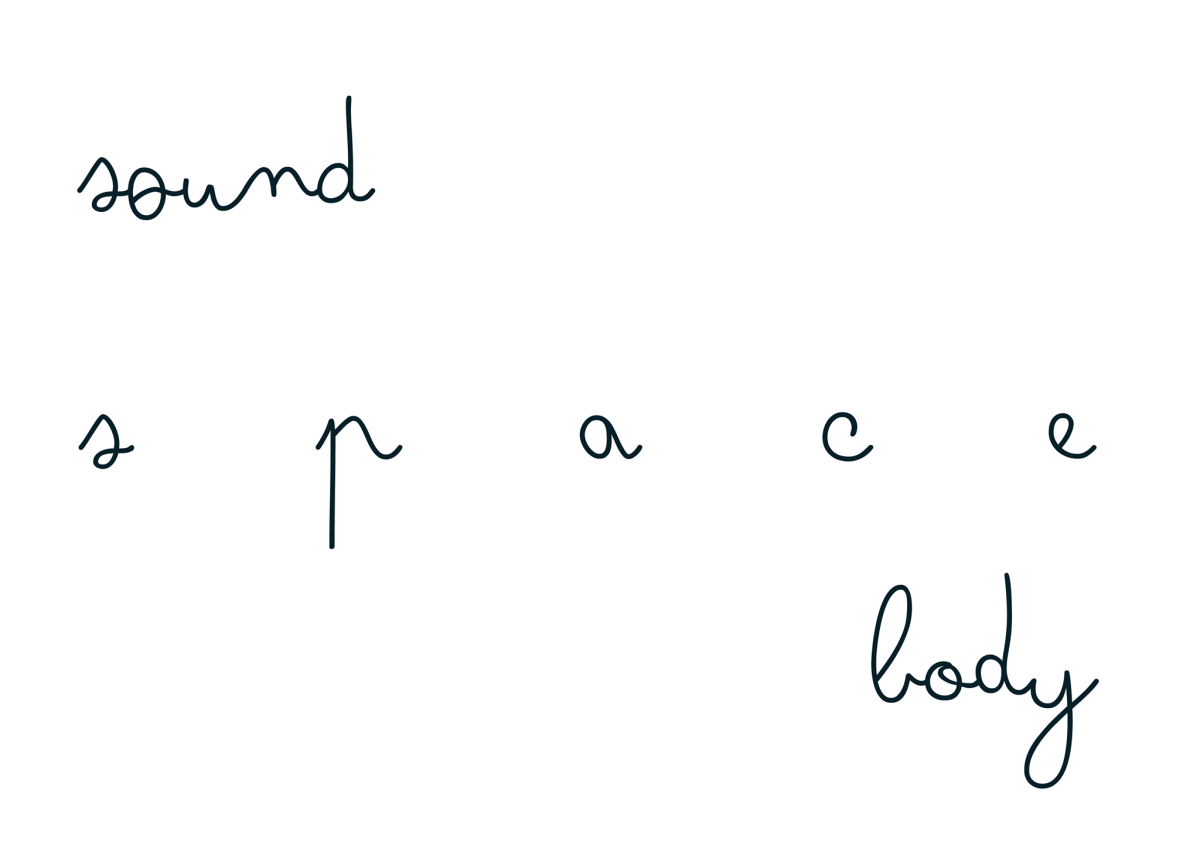 sound
s p a c e
body